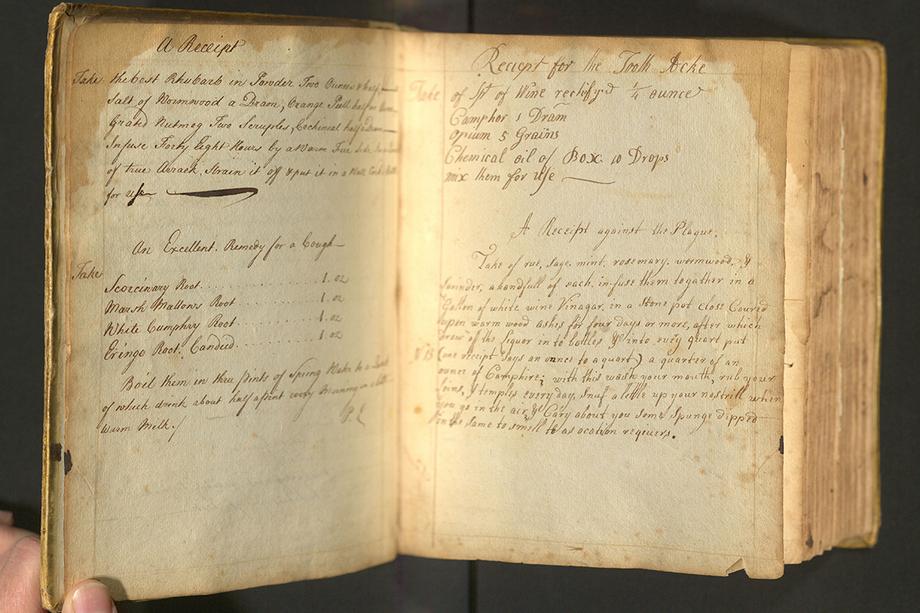 A Receipt
Take the best Rhubarb in Powder Two Ounces & half
Salt of Wormwood a Dram, Orange Peell half an
Grated Nutmeg Two Scruples, Cochineal half a Dram
Infuse Forty Eight Hours by a Warm Fire Side
of true Arrack, Strain it off & put it in a
for use
An Excellent Remedy for a Cough
Take
Scorcinary Root . . . . . . . . . . 1. oz
Marsh Mallows Root . . . . . . . . 1. oz
White Cumphry Root . . . . . . . . 1. oz
Eringo Root. Candied . . . . . . . . 1. oz
Boil them in three pints of Spring Water to a
of which drink about half a pint every Morning in a little
warm Milk.
Reciept for the Tooth Acke
Take of Spt of Wine rectify'd 1/4 ounce
Camphor 1 Dram
Opium 5 Grains
Chemical oil of Box 10 Drops
mix them for use
A Receipt against the Plague.
Take of rue, sage, mint, rosemary, wormwood, &
lavinder, a handfull of each, infuse them together in a
Gallon of white wine Vinagar, in a Stone pot close Coured
upon warm wood ashes for four days or more, after which
the liquor in to bottles & into every quart put
NB (one receipt says an ounce to a quart) a quarter of an
ounce of Camphire; with this wash your mouth, rub your
loins, & temples every day, snuf a little up your nostrill when
you go in the air, & Cary about you some Spunge dipped
in the same to smell to as ocation requiers.